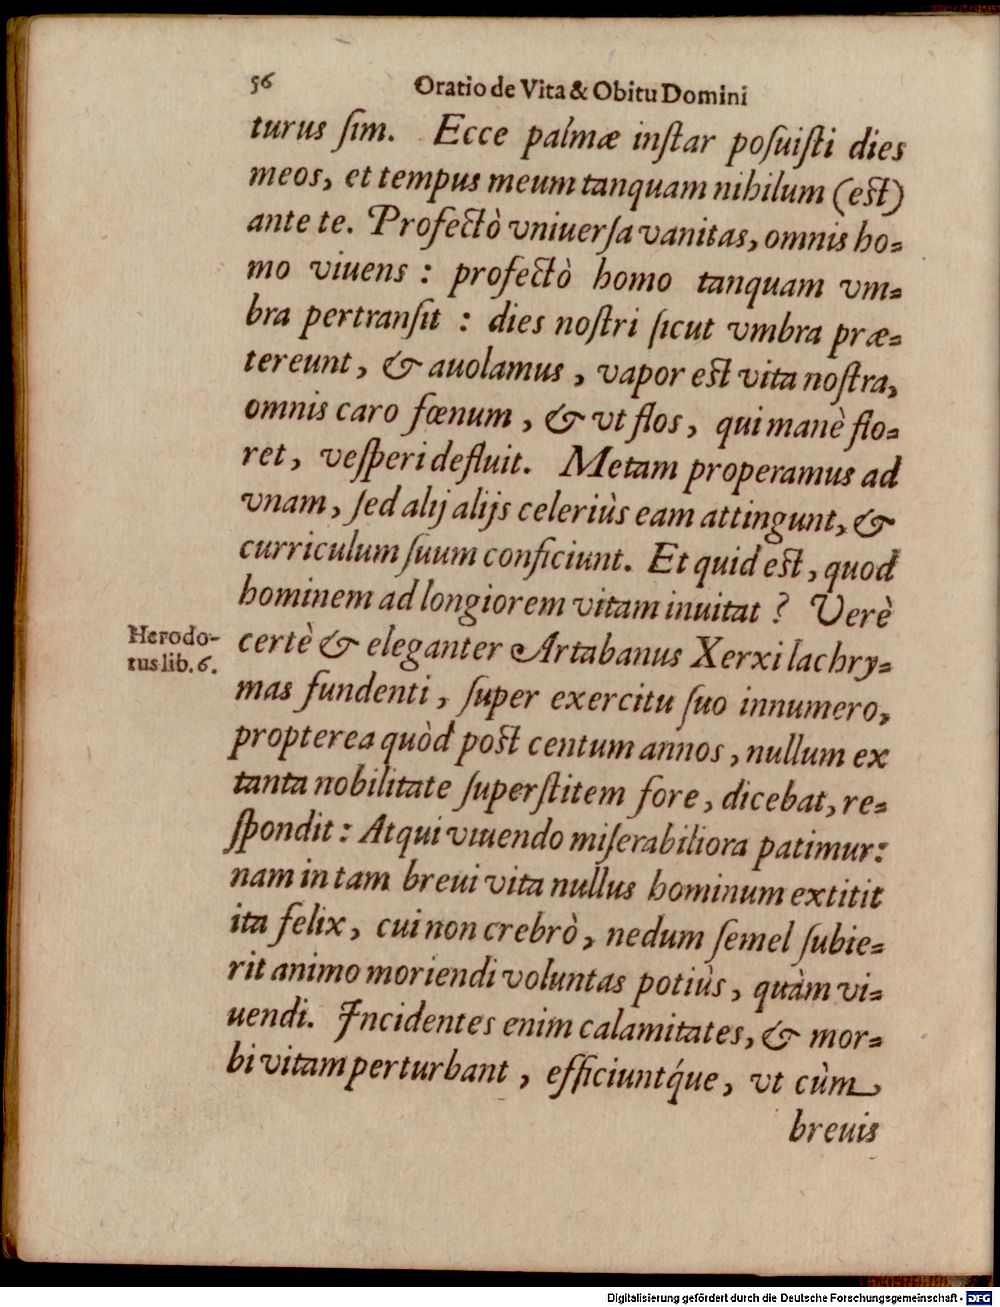 56 Oratio de Vita & Obitu Domini
turus ſim. Ecce palmæ inſtar poſuiſti dies
meos, et tempus meum tanquam nihilum (eſt)
ante te. Profectò vniuerſa vanitas, omnis ho-
mo viuens : profectò homo tanquam vm-
bra pertranſit : dies noſtri ſicut vmbra præ-
tereunt, & auolamus, vapor eſt vita noſtra,
omnis caro fœnum, & vt flos, qui manè flo-
ret, veſperi defluit. Metam properamus ad
vnam, ſed alij alijs celeriùs eam attingunt, &
curriculum ſuum conficiunt. Et quid eſt, quod
hominem ad longiorem vitam inuitat ? Verè
Herodo-
tus lib. 6.
certè & eleganter Artabanus Xerxi lachry-
mas fundenti, ſuper exercitu ſuo innumero,
propterea quòd poſt centum annos, nullum ex
tanta nobilitate ſuperſtitem fore, dicebat, re-
ſpondit : Atqui viuendo miſerabiliora patimur:
nam in tam breui vita nullus hominum extitit
ita felix, cui non crebrò, nedum ſemel ſubie-
rit animo moriendi voluntas potiùs, quàm vi-
uendi. Incidentes enim calamitates, & mor-
bi vitam perturbant, efficiuntq́ue, vt cùm
breuis
Digitalisierung gefördert durch die Deutsche Forschungsgemeinschaft - DFG